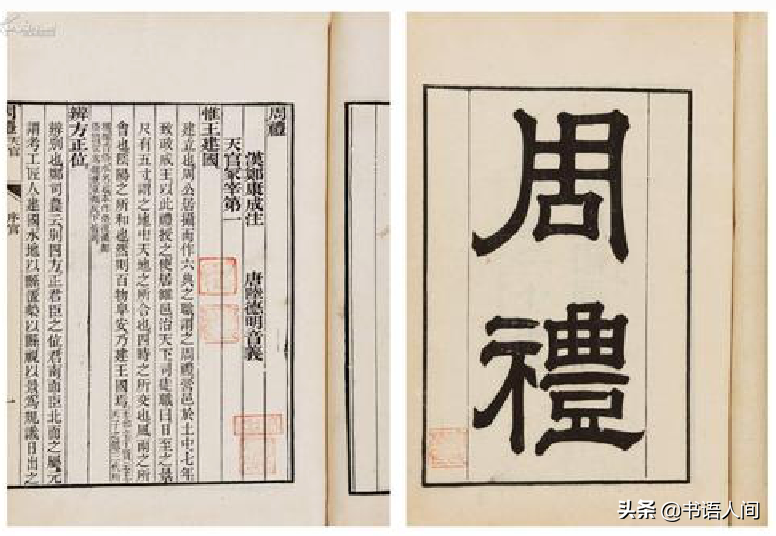 周禮
漢鄭康成注 唐陸德明音義
天官冢宰第一
惟王建國
建立也周公居攝而作六典之職謂之周禮營邑於土中七年
致政成王以此禮授之使居雒邑治天下司徒職曰日至之景
尺有五寸謂之地中天地之所合也四時之所交也風雨之所
會也陰陽之所和也然則百物阜安乃建王國焉
辨方正位
辨別也鄭司農云別四方正君臣之位君南面臣北面之屬元
謂考工匠人建國水地以縣置槷以縣視以景爲規識日出之
周禮天官 序官 一
周禮
头条 @书语人间